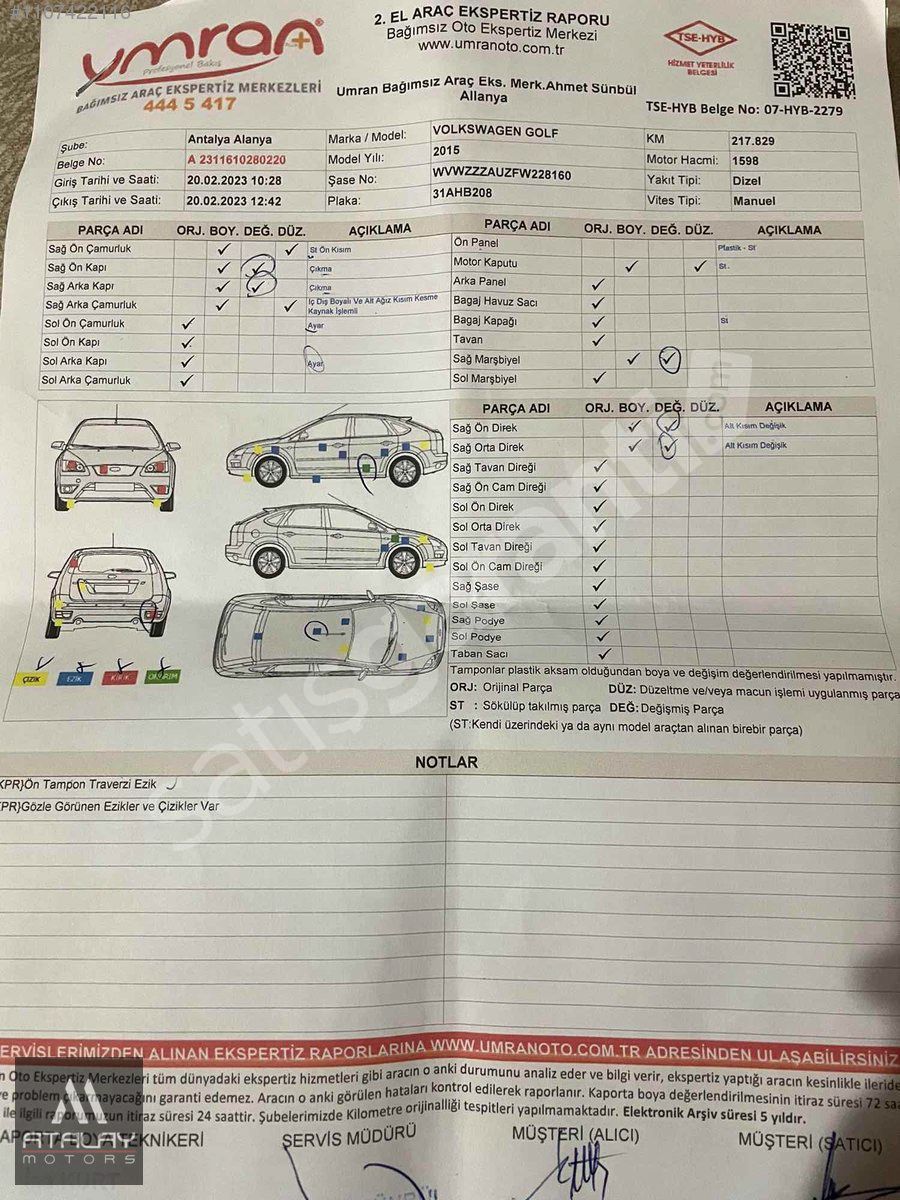 #1167422116
umran+
Profesyonel Bakış
BAĞIMSIZ ARAÇ EKSPERTİZ MERKEZLERİ
444 5 417
2. EL ARAÇ EKSPERTİZ RAPORU
Bağımsız Oto Ekspertiz Merkezi
www.umranoto.com.tr
Umran Bağımsız Araç Eks. Merk.Ahmet Sünbül
Allanya
TSE-HYB
HİZMET YETERLİLİK
BELGESİ
TSE-HYB Belge No: 07-HYB-2279
Şube: Antalya Alanya Marka / Model: VOLKSWAGEN GOLF KM 217.829
Belge No: A 2311610280220 Model Yılı: 2015 Motor Hacmi: 1598
Giriş Tarihi ve Saati: 20.02.2023 10:28 Şase No: WVWZZZAUZFW228160 Yakıt Tipi: Dizel
Çıkış Tarihi ve Saati: 20.02.2023 12:42 Plaka: 31AHB208 Vites Tipi: Manuel
PARÇA ADI ORJ. BOY. DEĞ. DÜZ. AÇIKLAMA
Sağ Ön Çamurluk ✓ ✓ St Ön Kısım
Sağ Ön Kapı ✓ ✓ Çıkma
Sağ Arka Kapı ✓ ✓ Çıkma
Sağ Arka Çamurluk ✓ ✓ İç Dış Boyalı Ve Alt Ağız Kısım Kesme
Kaynak İşlemli
Sol Ön Çamurluk ✓ Ayar
Sol Ön Kapı ✓
Sol Arka Kapı ✓ Ayar
Sol Arka Çamurluk ✓
PARÇA ADI ORJ. BOY. DEĞ. DÜZ. AÇIKLAMA
Ön Panel Plastik - St
Motor Kaputu ✓ ✓ St.
Arka Panel ✓
Bagaj Havuz Sacı ✓
Bagaj Kapağı ✓ St
Tavan ✓
Sağ Marşbiyel ✓ ✓
Sol Marşbiyel ✓
PARÇA ADI ORJ. BOY. DEĞ. DÜZ. AÇIKLAMA
Sağ Ön Direk ✓ ✓ Alt Kısım Değişik
Sağ Orta Direk ✓ ✓ Alt Kısım Değişik
Sağ Tavan Direği ✓
Sağ Ön Cam Direği ✓
Sol Ön Direk ✓
Sol Orta Direk ✓
Sol Tavan Direği ✓
Sol Ön Cam Direği ✓
Sağ Şase ✓
Sol Şase ✓
Sağ Podye ✓
Sol Podye ✓
Taban Sacı ✓
ÇİZİK EZİK KIRIK ONARIM
Tamponlar plastik aksam olduğundan boya ve değişim değerlendirilmesi yapılmamıştır.
ORJ: Orijinal Parça DÜZ: Düzeltme ve/veya macun işlemi uygulanmış parça
ST : Sökülüp takılmış parça DEĞ: Değişmiş Parça
(ST:Kendi üzerindeki ya da aynı model araçtan alınan birebir parça)
NOTLAR
KPR}Ön Tampon Traverzi Ezik
PR}Gözle Görünen Ezikler ve Çizikler Var
ERVİSLERİMİZDEN ALINAN EKSPERTİZ RAPORLARINA WWW.UMRANOTO.COM.TR ADRESİNDEN ULAŞABİLİRSİNİZ
n Oto Ekspertiz Merkezleri tüm dünyadaki ekspertiz hizmetleri gibi aracın o anki durumunu analiz eder ve bilgi verir, ekspertiz yaptığı aracın kesinlikle ileride
ve problem çıkarmayacağını garanti edemez. Aracın o anki görülen hataları kontrol edilerek raporlanır. Kaporta boya değerlendirilmesinin itiraz süresi 72 saa
ile ilgili raporumuzun itiraz süresi 24 saattir. Şubelerimizde Kilometre orijinalliği tespitleri yapılmamaktadır. Elektronik Arşiv süresi 5 yıldır.
APORTA BOYA TEKNİKERİ SERVİS MÜDÜRÜ MÜŞTERİ (ALICI) MÜŞTERİ (SATICI)
ATALAY
MOTORS